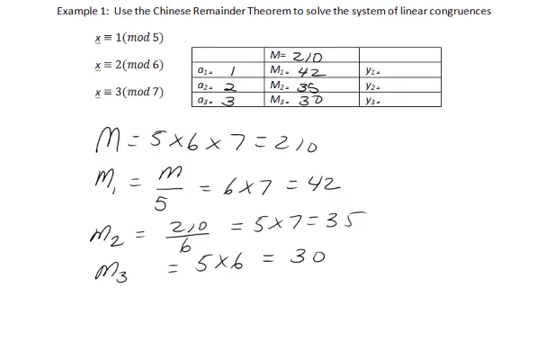 Example 1: Use the Chinese Remainder Theorem to solve the system of linear congruences
x ≡ 1(mod 5)
x ≡ 2(mod 6)
x ≡ 3(mod 7)
M= 210
a₁= 1 M₁= 42 y₁=
a₂= 2 M₂= 35 y₂=
a₃= 3 M₃= 30 y₃=
M = 5 x 6 x 7 = 210
M₁ = M/5 = 6 x 7 = 42
M₂ = 210/6 = 5 x 7 = 35
M₃ = 5 x 6 = 30